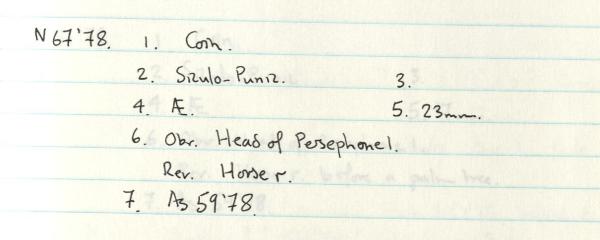 N 67'78. 1. Coin.
2. Siculo-Punic. 3.
4. Æ. 5. 23mm.
6. Obv. Head of Persephone l.
Rev. Horse r.
7. As 59'78.